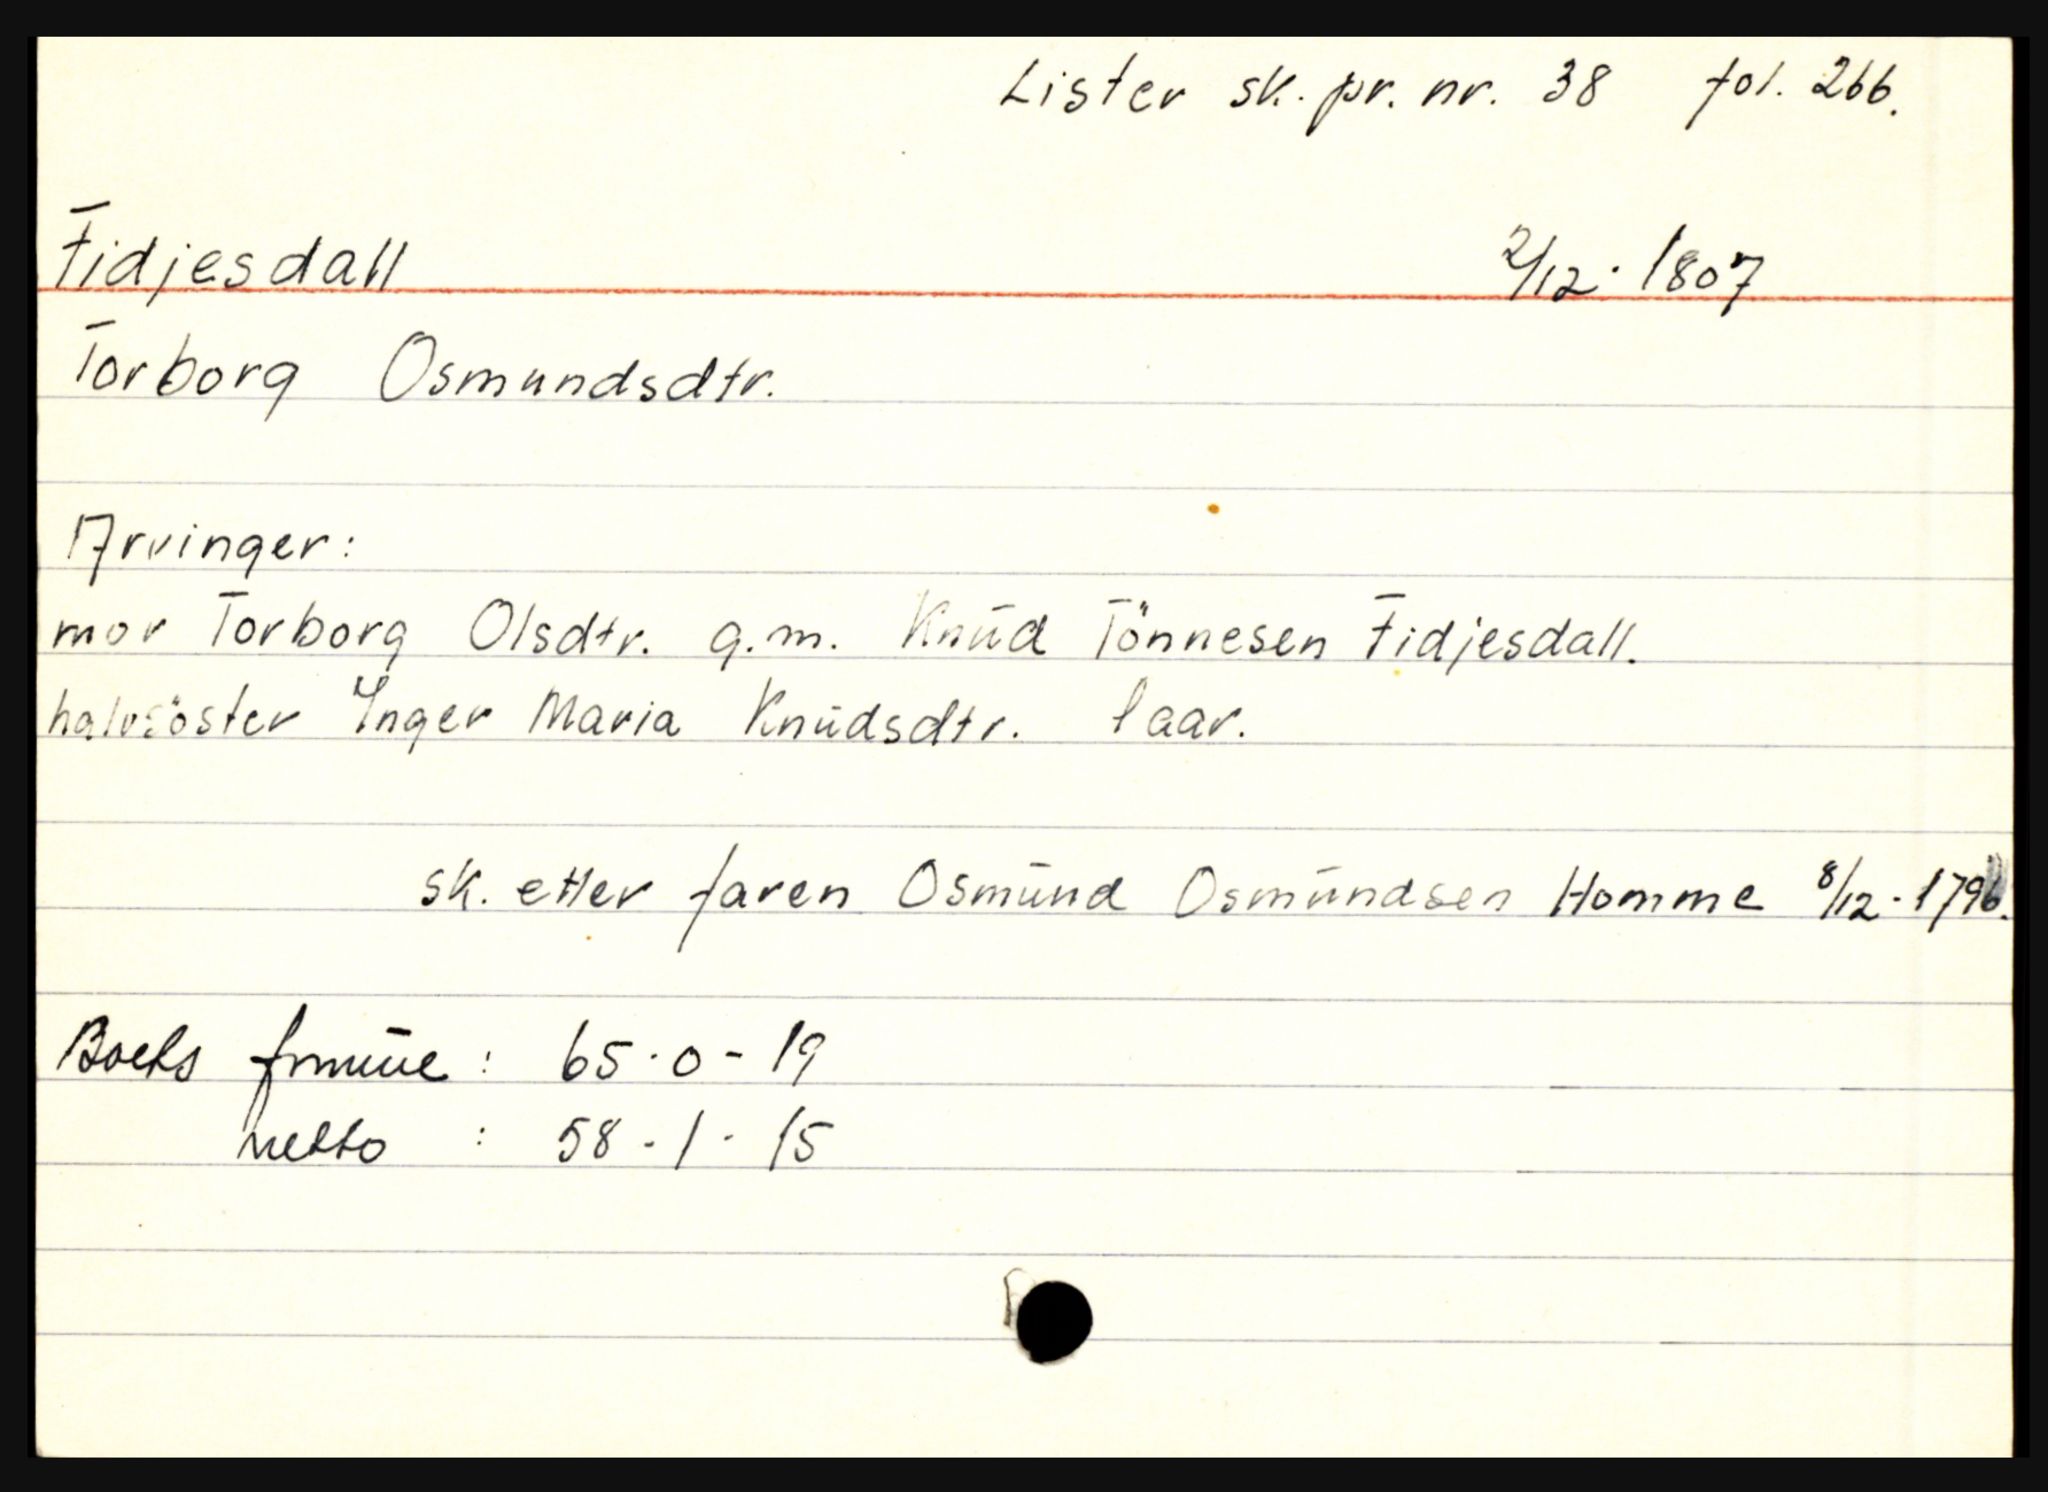 Lister sk. pr. nr. 38 fol. 266.
Fidjesdall 2/12. 1807
Torborg Osmundsdtr.
Arvinger:
mor Torborg Olsdtr. g.m. Knūd Tönnesen Fidjesdall.
halvsöster Ynger Maria Knūdsdtr. 1 aar.
sk. etter faren Osmūnd Osmūndsen Homme 8/12. 1796.
Boets : 65 - 0 - 19
netto : 58 - 1 - 15